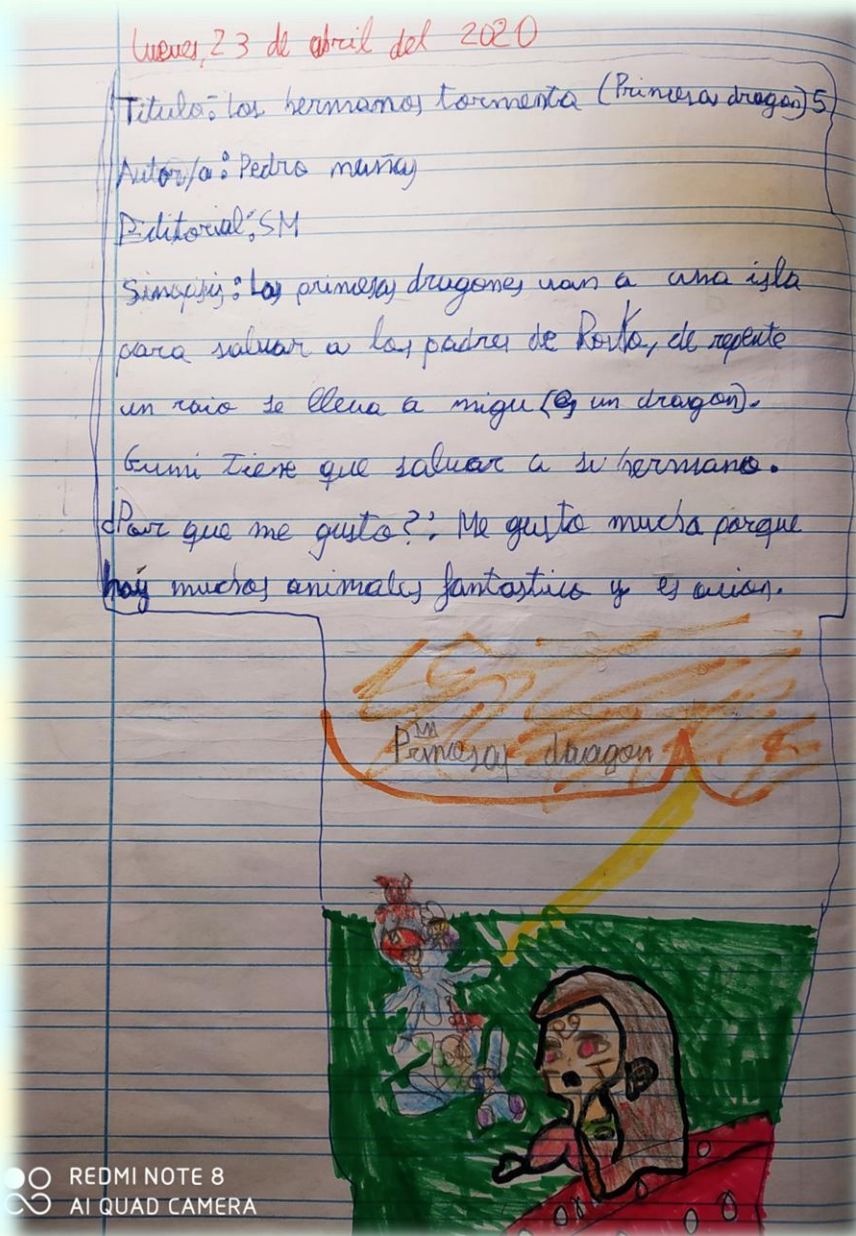 Jueves, 23 de abril del 2020
Titulo: Los hermanos tormenta (Princesas dragon) 5
Autor/a: Pedro mañas
Editorial: SM
Sinopsis: Las princesas dragones van a una isla
para salvar a los padres de Rosko, de repente
un raio se lleva a migu (es un dragon).
Gumi tiene que salvar a su hermano.
¿Por que me gusto?: Me gusto mucho porque
hay muchos animales fantastico y es
Princesas dragon
REDMI NOTE 8
AI QUAD CAMERA